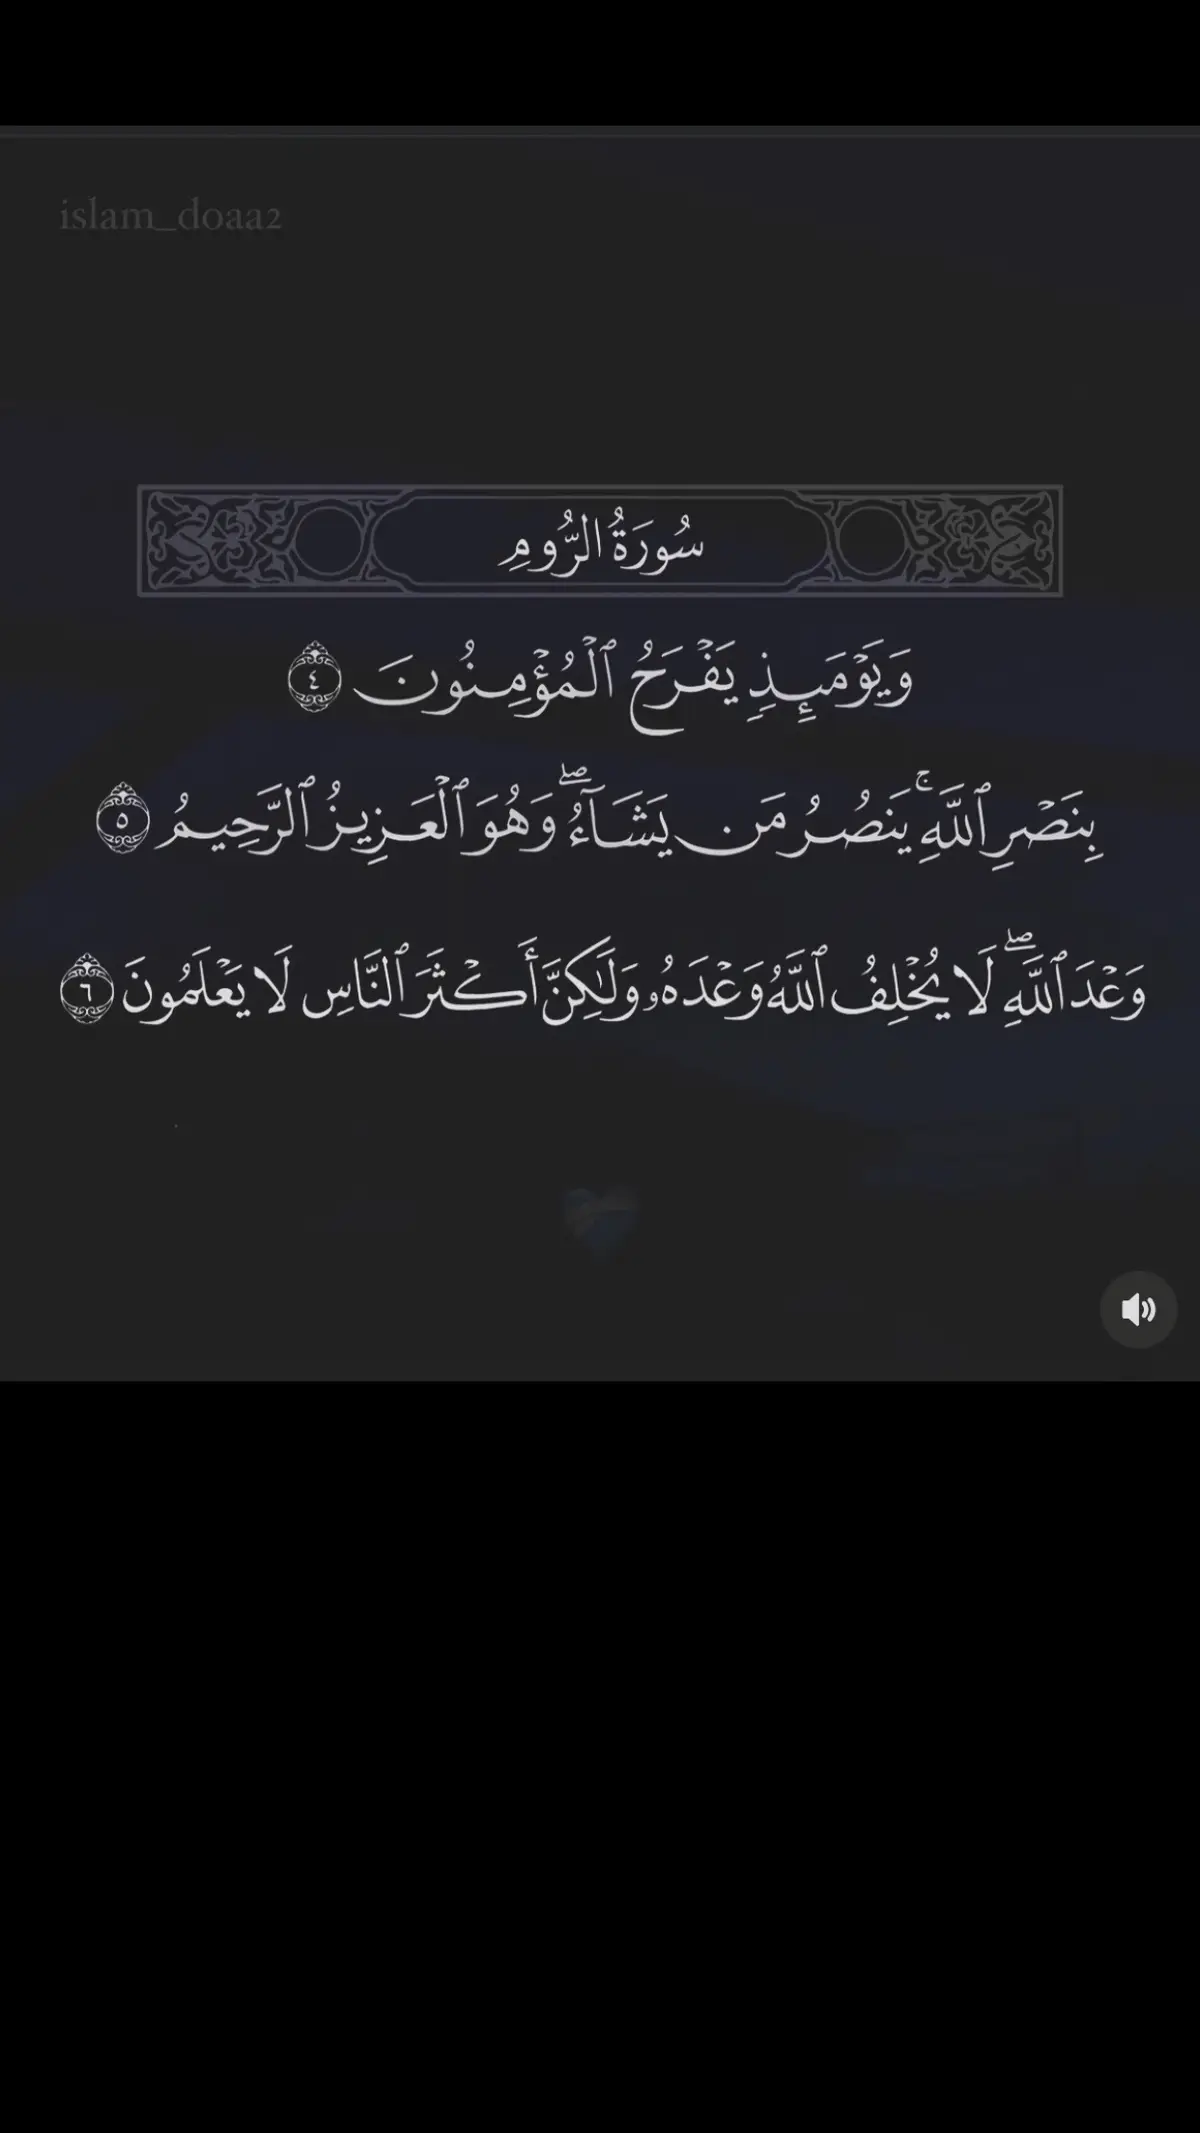 islam_doaa2
سُورَةُ الرُّومِ
وَيَوْمَئِذٍ يَفْرَحُ ٱلْمُؤْمِنُونَ ٤
بِنَصْرِ ٱللَّهِ ۚ يَنصُرُ مَن يَشَآءُ ۖ وَهُوَ ٱلْعَزِيزُ ٱلرَّحِيمُ ٥
وَعْدَ ٱللَّهِ ۖ لَا يُخْلِفُ ٱللَّهُ وَعْدَهُۥ وَلَٰكِنَّ أَكْثَرَ ٱلنَّاسِ لَا يَعْلَمُونَ ٦